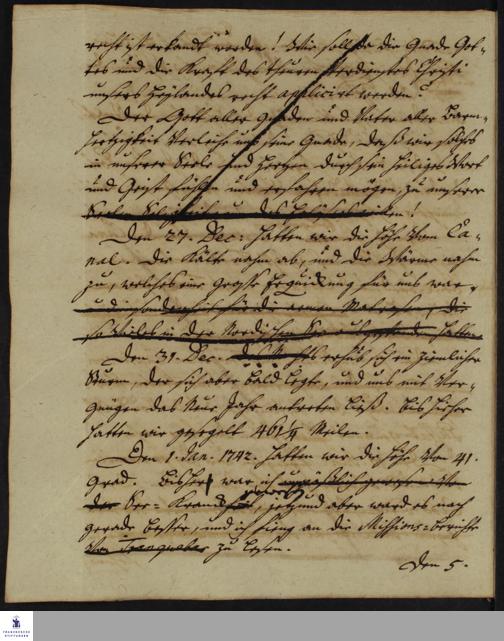 recht ist erkandt werden! Wie soll da die Gnade Got-
tes und die Krafft des theuren Verdienstes Christi
unsers Heylandes recht applicirt werden!
Der Gott aller Gnaden und Vater aller Barm-
hertzigkeit verleihe uns seine Gnade, daß wir solches
in unserer Seele und Hertzen durch sein heiliges Wort
und Geist fühlen und erfahren mögen, zu unserer
Den 27. Dec: hatten wir die Höhe vom Ca-
nal. Die Kälte nahm ab, und die Wärme nahm
zu, welches eine grosse Erquickung für uns war
Den 31. Dec. erhub sich ein ziemlicher
Sturm, der sich aber bald legte, und uns mit Ver-
gnügen das Neue Jahr antreten ließ. Bis hieher
hatten wir gesegelt 461 1/4 Meilen.
Den 1. Jan. 1742. hatten wir die Höhe von 41.
Grad. Bisher war ich
See-Kranck jetzund aber ward es nach
gerade besser, und ich fieng an die Missions-Berichte
von Tranquebar zu lesen.
Den 5.
FRANCKESCHE
STIFTUNGEN